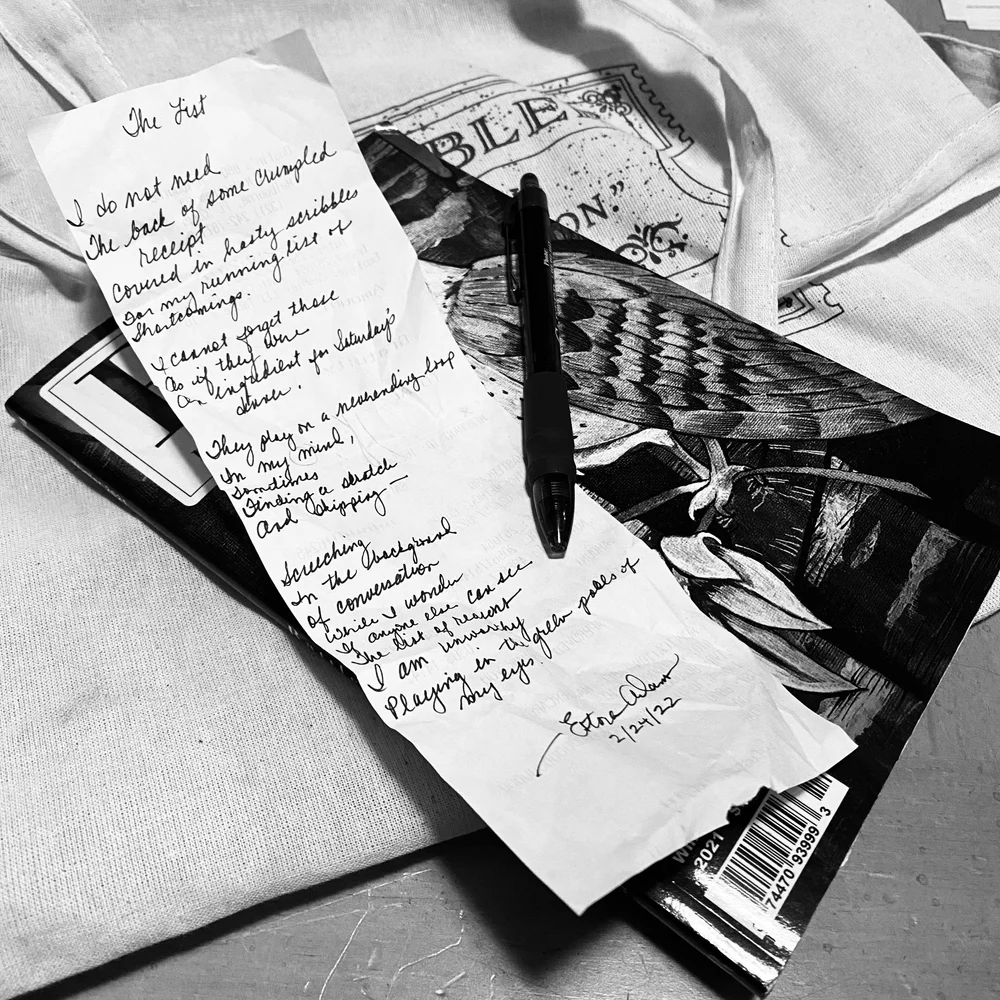 The List
I do not need
The back of some crumpled
receipt
Covered in hasty scribbles
For my running list of
Shortcomings.
I cannot forget these
As if they were
An ingredient for Saturday's
dinner.
They play on a neverending loop
In my mind,
Sometimes
Finding a scratch
And skipping—
Screeching
In the background
of conversation
While I wonder
If anyone else can see
The list of reasons
I am unworthy
Playing in the green pools of
my eyes.
2/24/22
BLE
ON."
2021
74470 93999 3